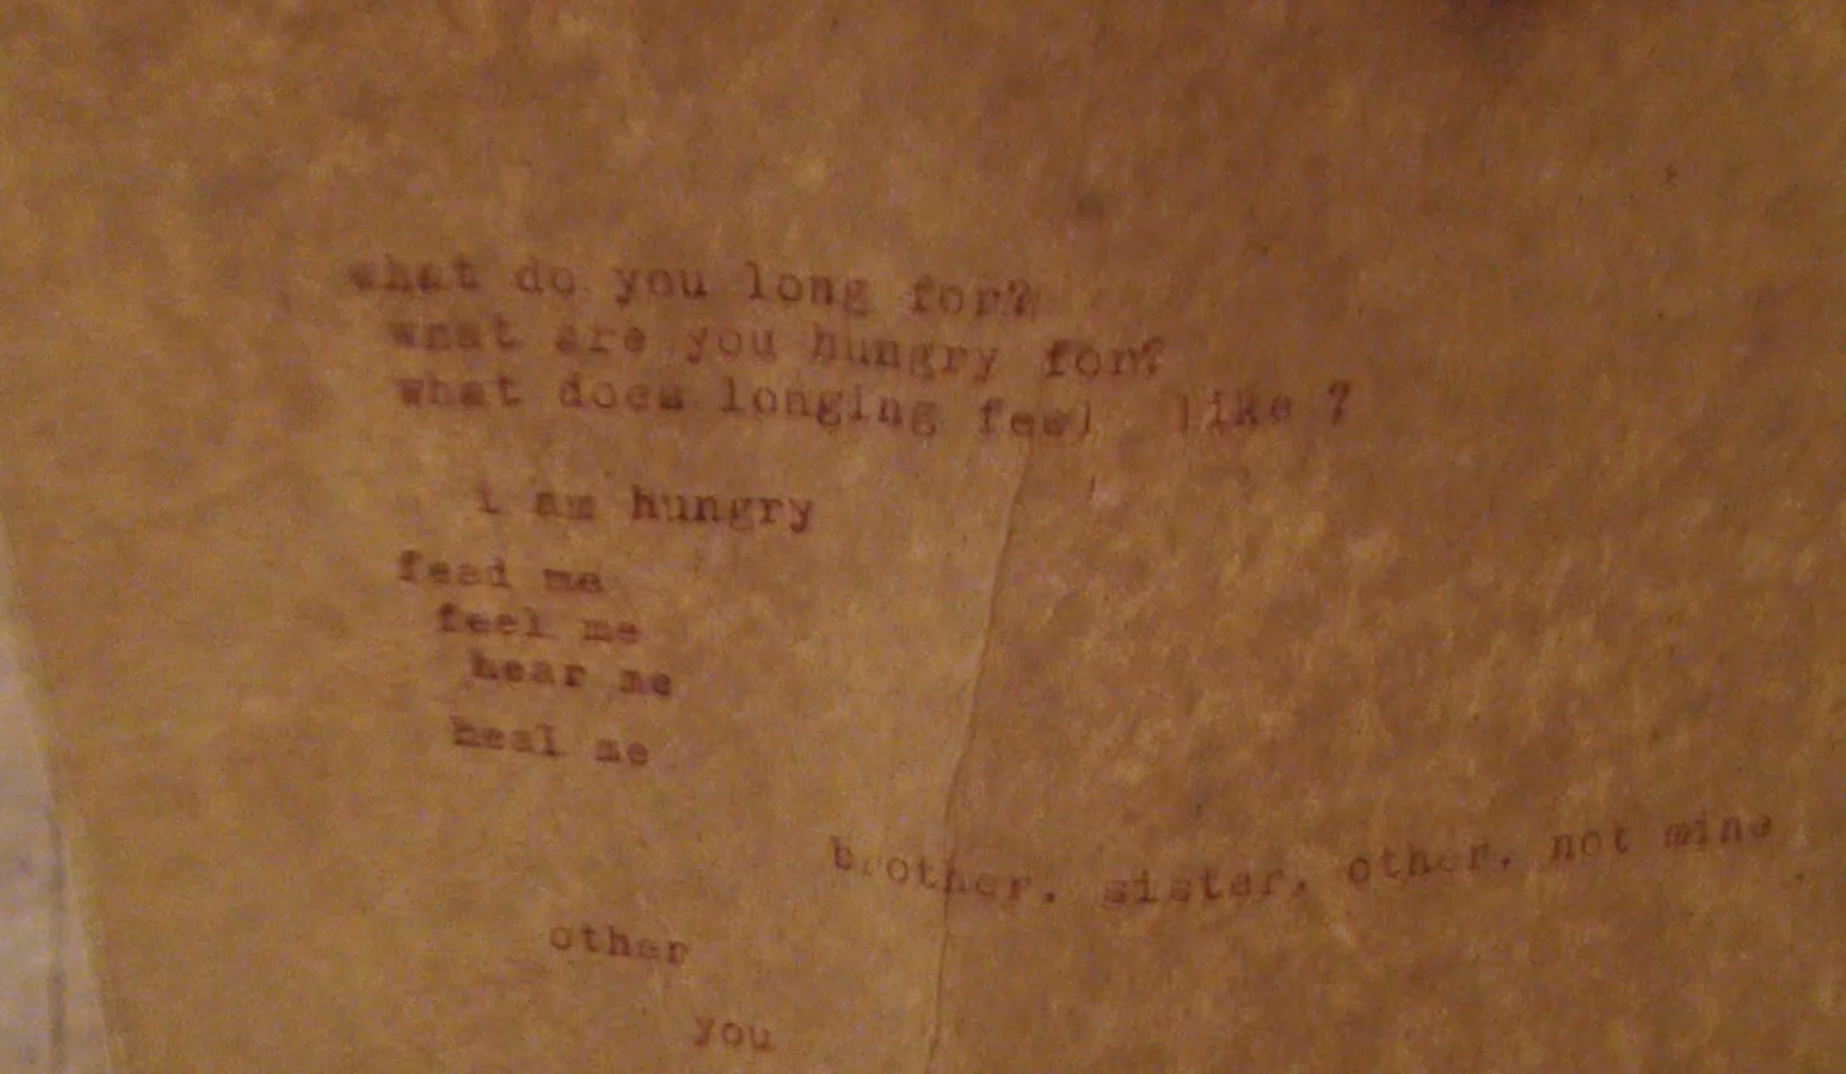 what do you long for?
what are you hungry for?
what does longing feel like ?
i am hungry
feed me
feel me
hear me
heal me
brother. sister. other. not mine
other
you